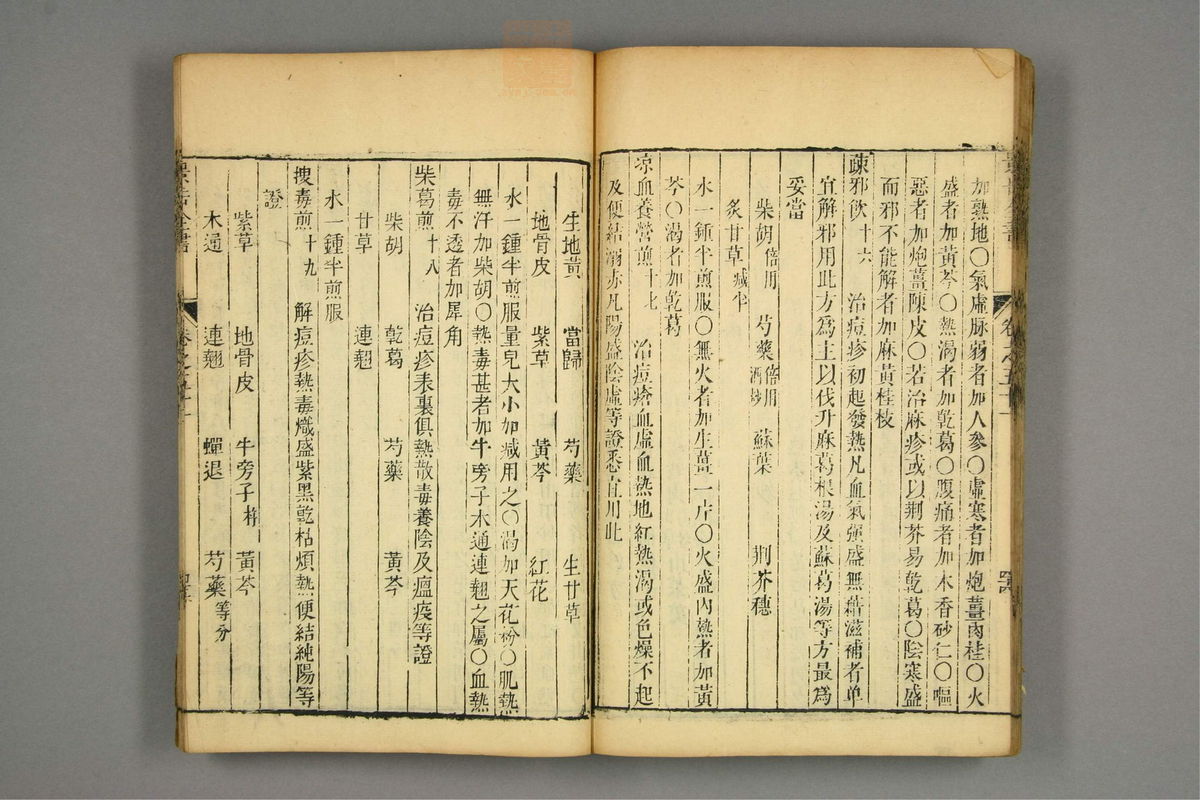 加熟地〇氣虛脉弱者加人參〇虛寒者加炮薑肉桂〇火
盛者加黃芩〇熱渴者加乾葛〇腹痛者加木香砂仁〇嘔
惡者加炮薑陳皮〇若治麻疹或以荆芥易乾葛〇陰寒盛
而邪不能解者加麻黃桂枝
疎邪飲十六 治痘疹初起發熱凡血氣強盛無藉滋補者单
宜解邪用此方爲主以代升麻葛根湯及蘇葛湯等方最爲
妥當
柴胡倍用 芍藥倍用酒炒 蘇葉 荆芥穗
炙甘草減半
水一鍾半煎服〇無火者加生薑一片〇火盛内熱者加黃
芩〇渴者加乾葛
凉血養營煎十七 治痘瘡血虛血熱地紅熱渴或色燥不起
及便結溺赤凡陽盛陰虛等證悉宜用此
生地黃 當歸 芍藥 生甘草
地骨皮 紫草 黃芩 紅花
水一鍾半煎服量兒大小加減用之〇渴加天花粉〇肌熱
無汗加柴胡〇熱毒甚者加牛旁子木通連翹之屬〇血熱
毒不透者加犀角
柴葛煎十八 治痘疹表裏俱熱散毒養陰及瘟疫等證
柴胡 乾葛 芍藥 黃芩
甘草 連翹
水一鍾半煎服
搜毒煎十九 解痘疹熱毒熾盛紫黑乾枯煩熱便結純陽等
證
紫草 地骨皮 牛旁子杵 黃芩
木通 連翹 蟬退 芍藥等分
景岳全書 卷之五十一